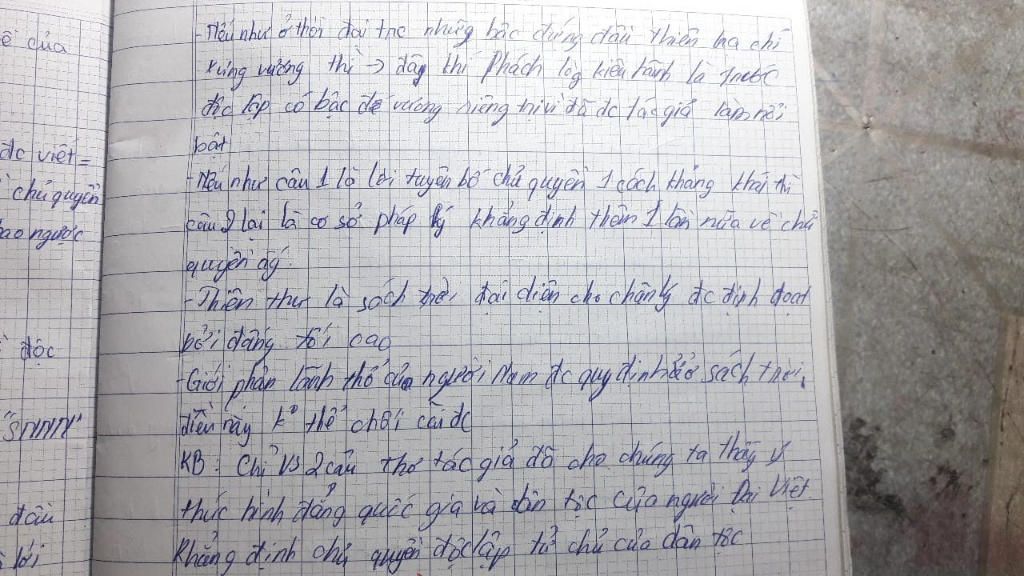 ề của
đc việt =
chủ quyền
bao người
độc
"SNNN"
đầu
lời
- Nếu như ở thời đại trc những bậc đứng đầu thiên hạ chỉ
xưng vương thì → đây khí phách lòg kiêu hãnh là 1 nước
độc lập có bậc đế vương riêng trị vì đã đc tác giả làm nổi
bật
- Nếu như câu 1 là lời tuyên bố chủ quyền 1 cách khẳng khái thì
câu 2 lại là cơ sở pháp lý khẳng định thêm 1 lần nữa về chủ
quyền ấy.
- Thiên thư là sách trời, đại diện cho chân lý đc định đoạt
bởi đấng tối cao
- Giới phận lãnh thổ của người Nam đc quy định ở sách trời,
điều này k thể chối cãi đc
KB: Chỉ vs 2 câu thơ tác giả đã cho chúng ta thấy ý
thức bình đẳng quốc gia và dân tộc của người Đại Việt
Khẳng định chủ quyền độc lập tự chủ của dân tộc